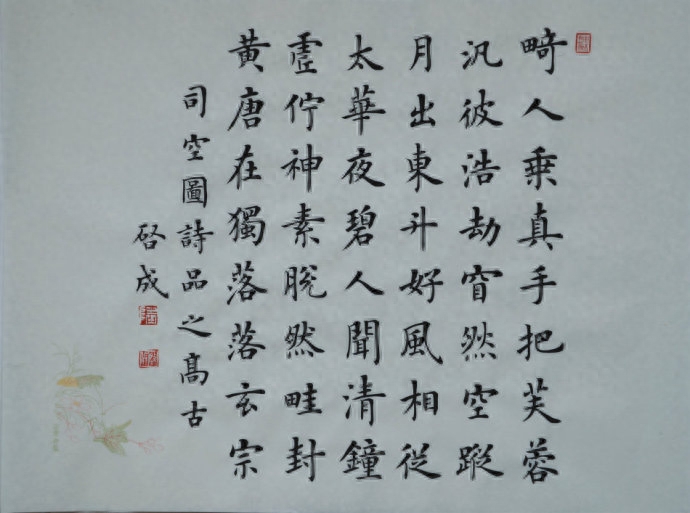 畸人乘真手把芙蓉
汎彼浩劫窅然空蹤
月出東斗好風相從
太華夜碧人聞清鐘
虛佇神素脫然畦封
黃唐在獨落落玄宗
司空圖詩品之髙古
啓成